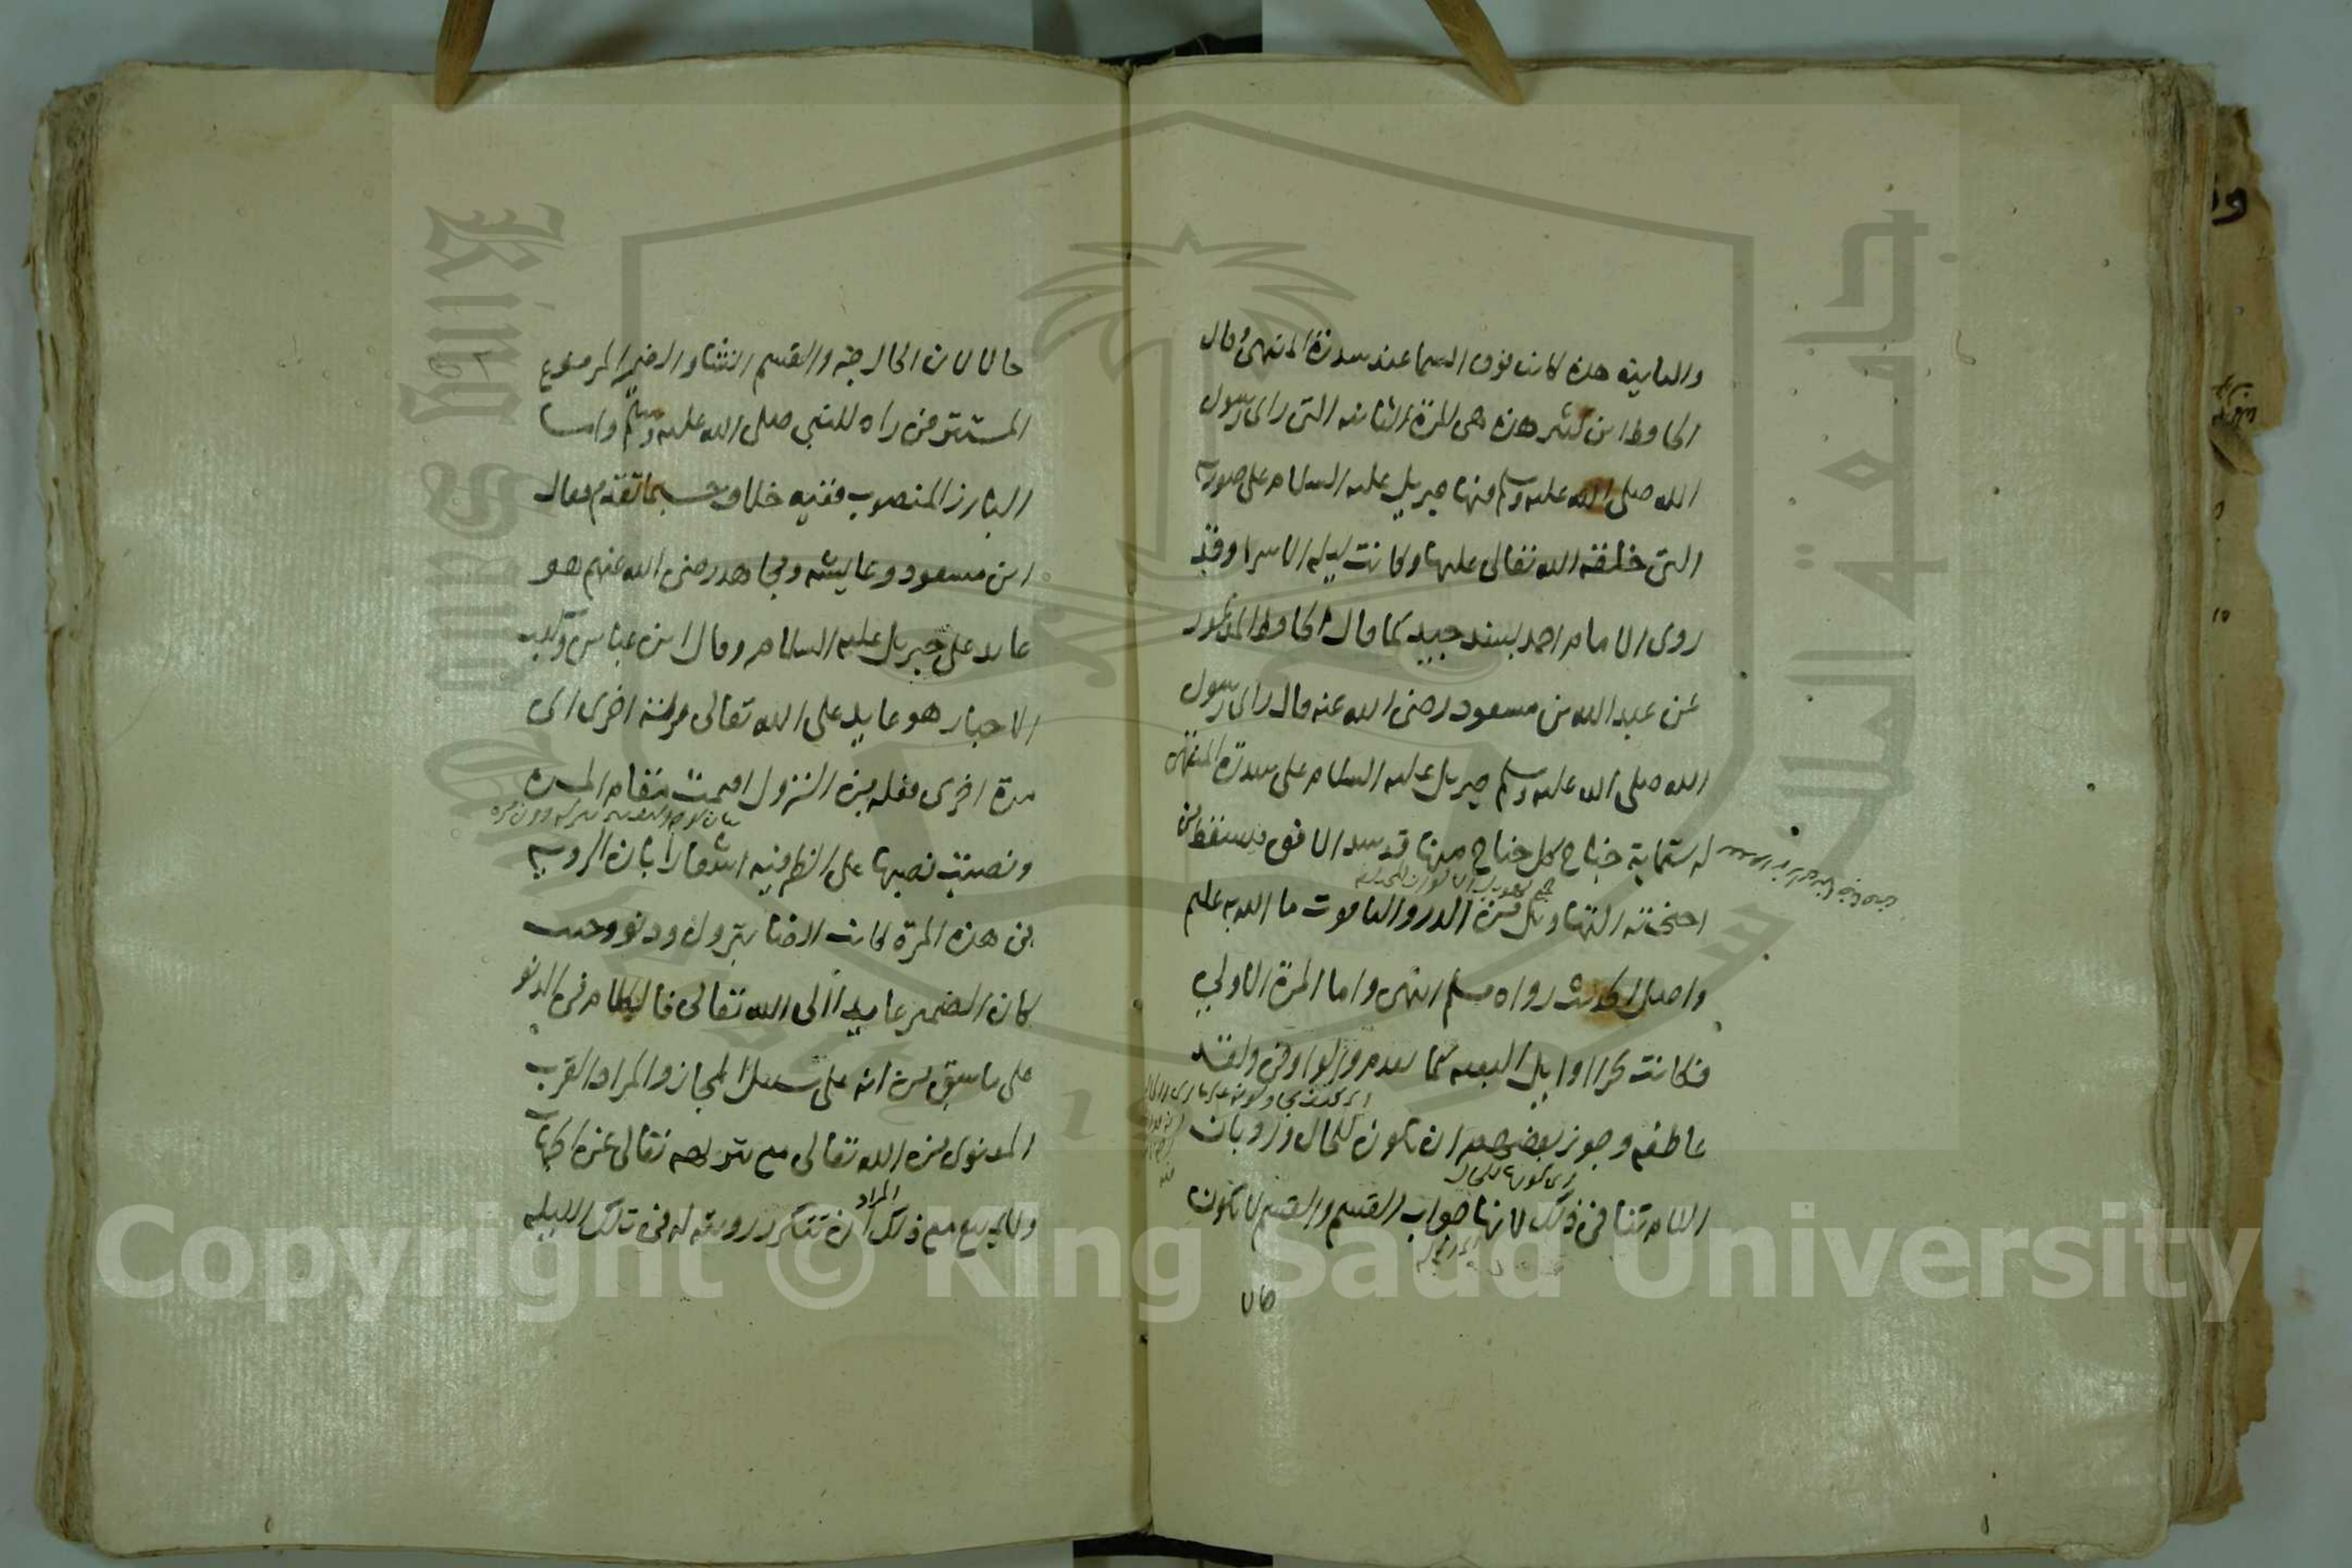 والثانية هذه كانت فوق السما عند سدرة المنتهى وقال
الحافظ ابن كثير هذه هي المرة الثانية التي راى رسول
الله صلى الله عليه وسلم فيها جبريل عليه السلام على صورته
التي خلقه الله تعالى عليها وكانت ليلة الاسرا وقد
روى الامام احمد بسند جيد كما قال الحافظ المذكور
عن عبد الله بن مسعود رضي الله عنه قال راى رسول
الله صلى الله عليه وسلم جبريل عليه السلام على سدرة المنتهى
له ستماية جناح كل جناح منها قد سد الافق يسقط من
اجنحته التهاويل من الدر والياقوت ما الله به عليم
واصل الحديث رواه مسلم انتهى واما المرة الاولى
فكانت بحرا اوايل البعثة كما تقدم والواو في ولقد
عاطفة وجوز بعضهم ان تكون للحال ورد بان
اللام تنافي ذلك لانها جواب القسم والقسم لا يكون
حالا
حالا لان الحال خبر والقسم انشاء والضمير المرفوع
المستتر في راه للنبي صلى الله عليه وسلم واما
البارز المنصوب ففيه خلاف حسبما تقدم فقال
ابن مسعود وعايشة ومجاهد رضي الله عنهم هو
عايد على جبريل عليه السلام وقال ابن عباس وكعب
الاحبار هو عايد على الله تعالى ونزلة اخرى اى
مرة اخرى فعلة من النزول اقيمت مقام المرة
ونصبت نصبها على الظرفية اشعارا بان الروية
في هذه المرة كانت ايضا بنزول ودنو وحيث
كان الضمير عايدا الى الله تعالى فالكلام في الدنو
على ما سبق من انه على سبيل المجاز والمراد القرب
المعنوي من الله تعالى مع تنزيهه تعالى عن الجهات
المراد
ولا يمتنع مع ذلك ان تتكرر رويته له في تلك الليلة
Copyright © King Saud University
جامعة الملك سعود
King Saud University